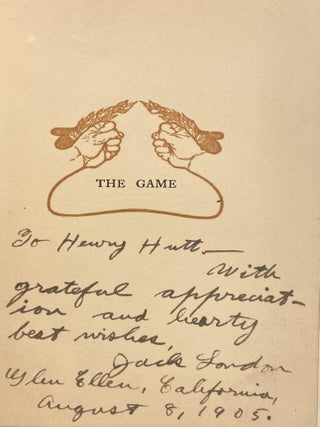 THE GAME
To Henry Hutt—
With
grateful appreciat-
ion and hearty
best wishes,
Jack London
Glen Ellen, California,
August 8, 1905.